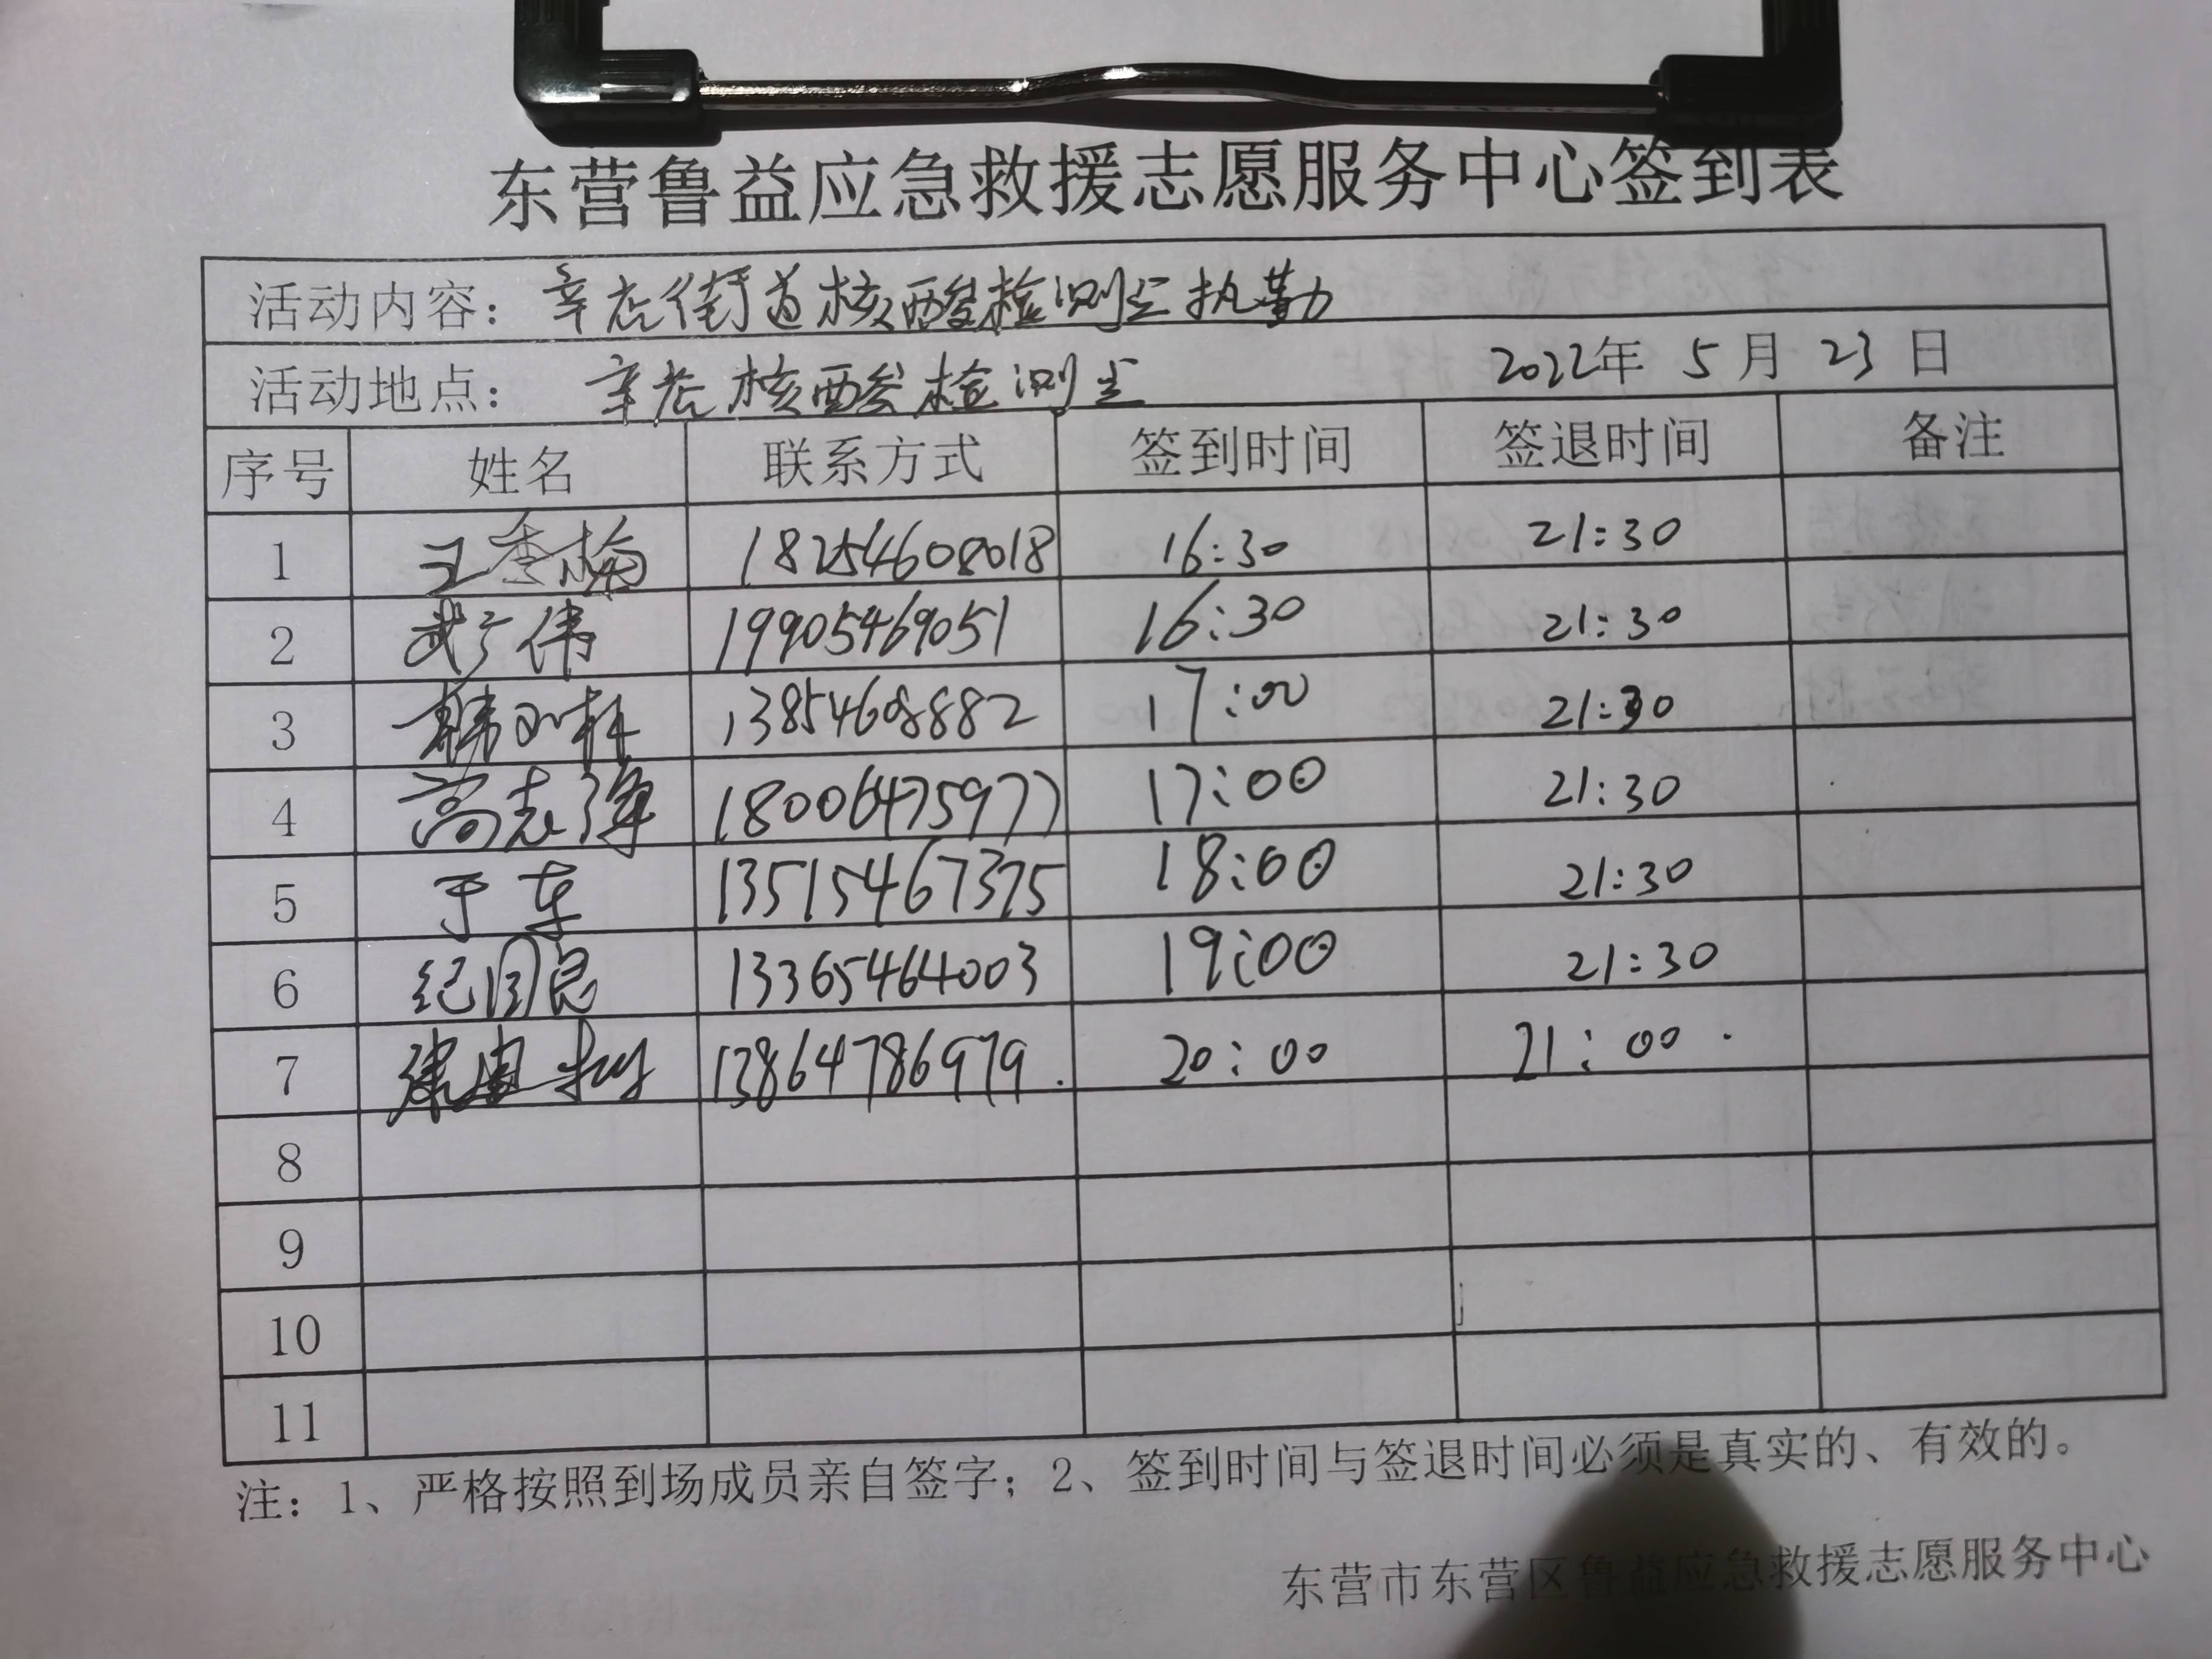 东营鲁益应急救援志愿服务中心签到表
活动内容：辛店街道核酸检测点执勤
活动地点：辛店核酸检测点 2022年 5月 23日
序号 姓名 联系方式 签到时间 签退时间 备注
1 王秀梅 18254608018 16:30 21:30
2 武广伟 19905469051 16:30 21:30
3 13854608882 17:00 21:30
4 高志强 18006475977 17:00 21:30
5 于东 13515467375 18:00 21:30
6 纪国良 13365464003 19:00 21:30
7 13864786979. 20:00 21:00.
8
9
10
11
注：1、严格按照到场成员亲自签字；2、签到时间与签退时间必须是真实的、有效的。
东营市东营区鲁益应急救援志愿服务中心